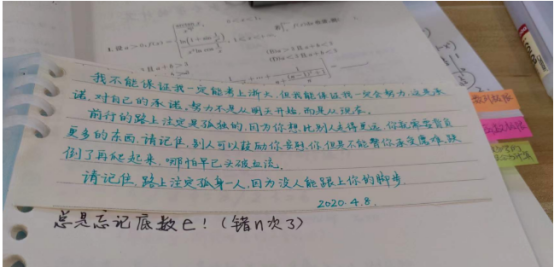 我不能保证我一定能考上浙大,但我能保证我一定会努力,这是承
诺,对自己的承诺,努力不是从明天开始,而是从现在。
前行的路上注定是孤独的,因为你想比别人走得更远,你就需要背负
更多的东西,请记住,别人可以鼓励你安慰你,但是不能替你承受苦难,跌
倒了再爬起来,哪怕早已头破血流。
请记住,路上注定孤身一人,因为没人能跟上你的脚步
2020.4.8.
总是忘记底数e!(错n次了)